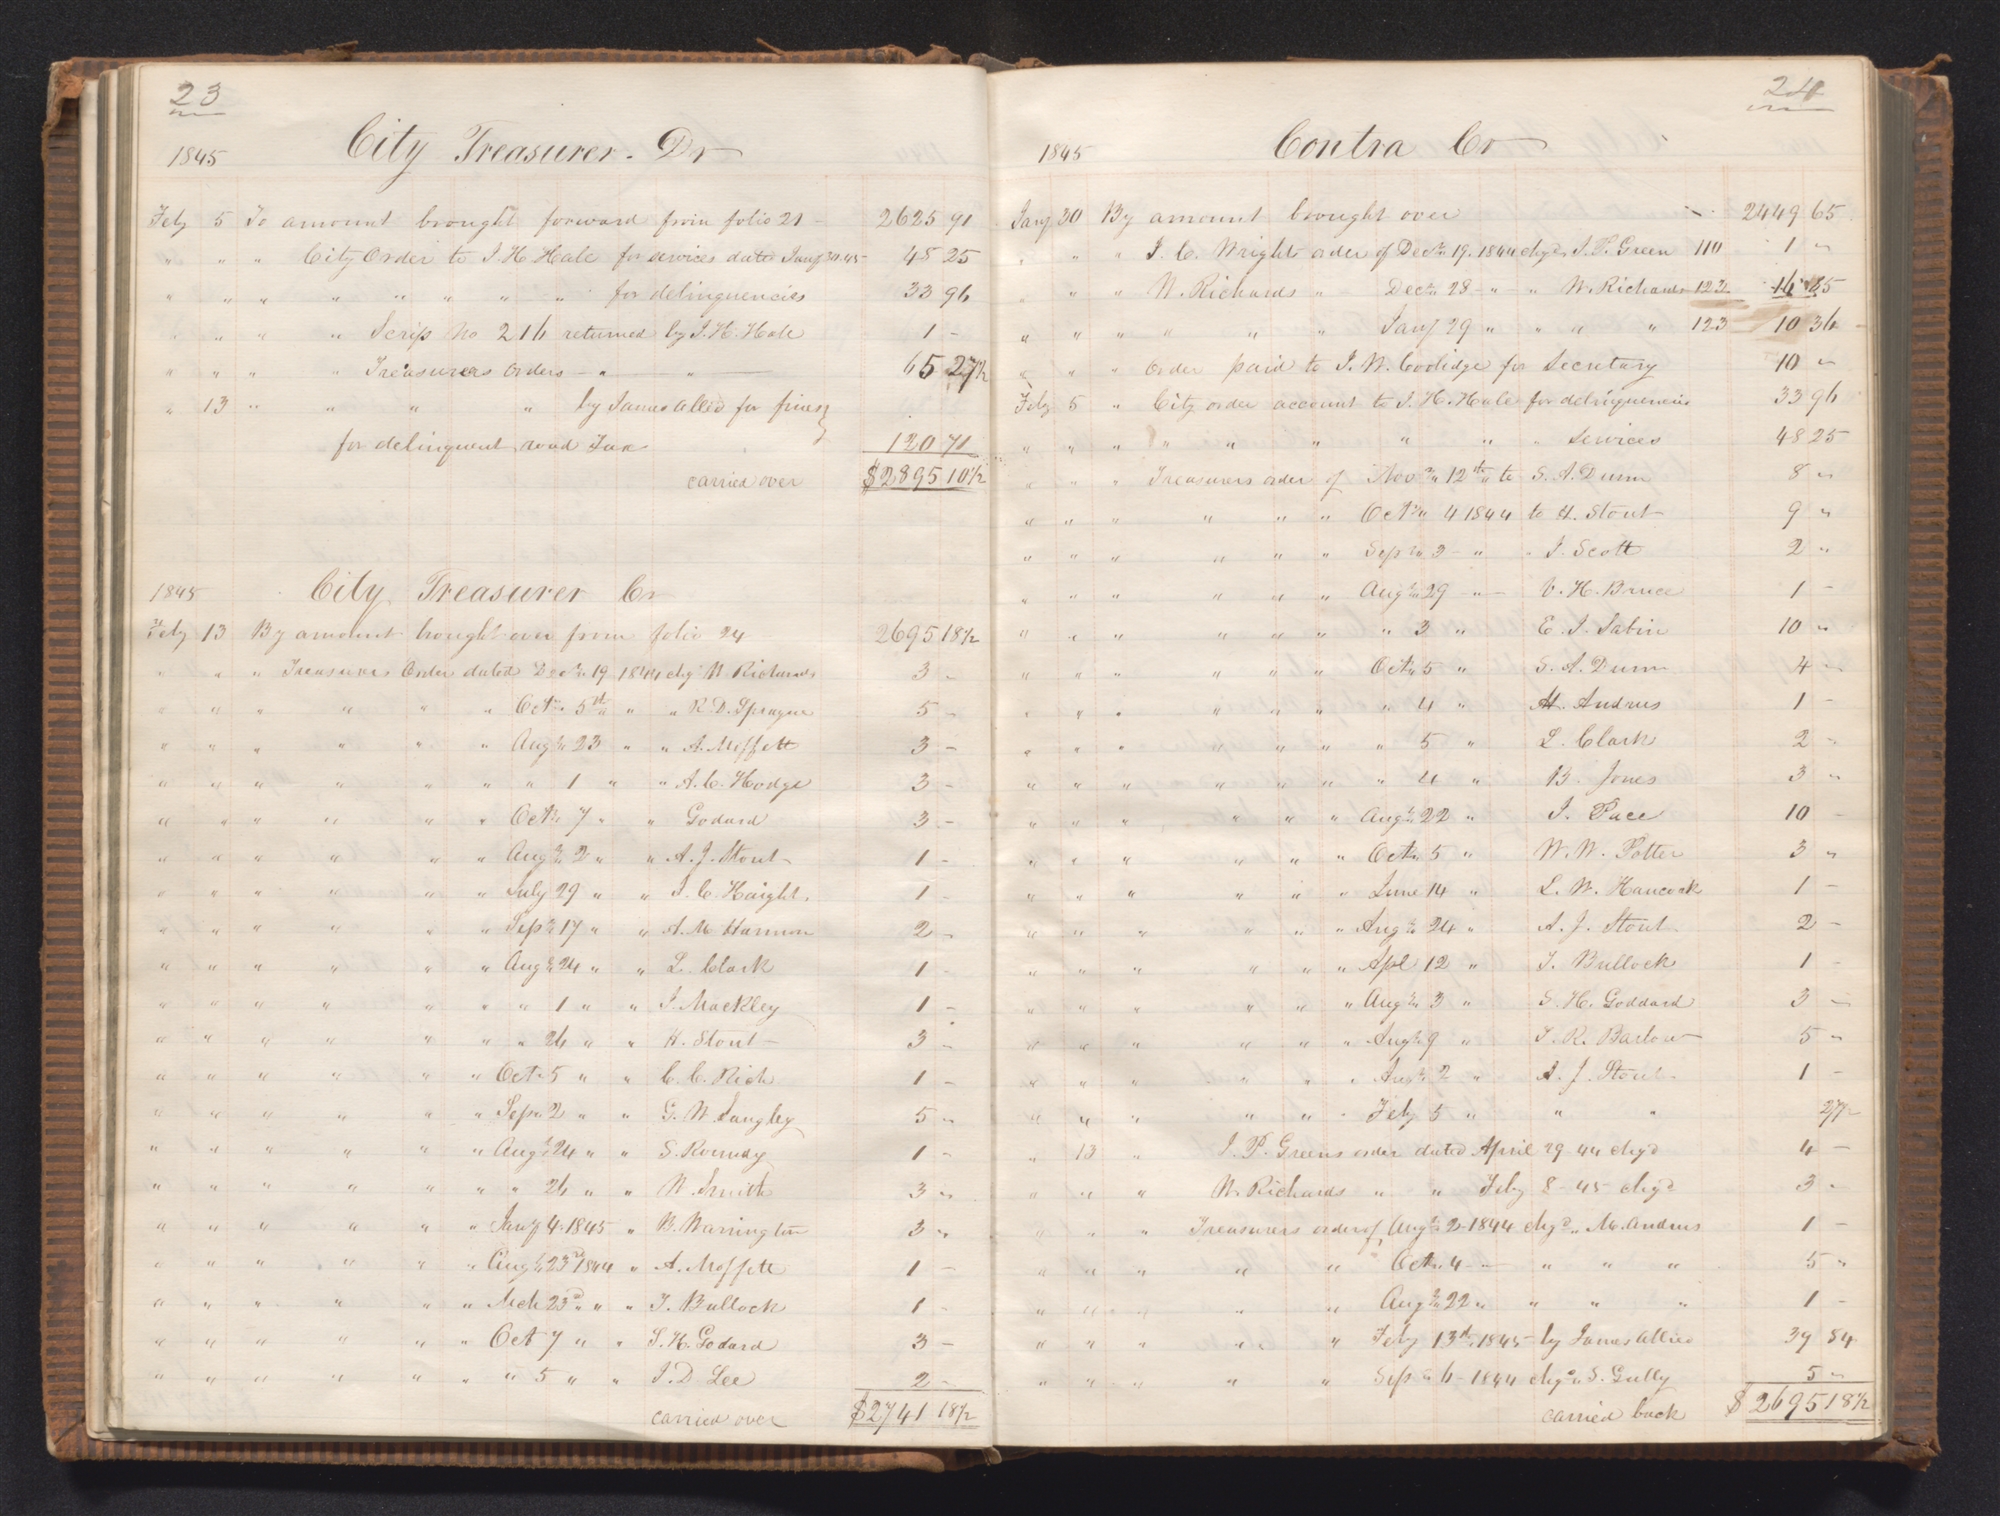 23
1845 City Treasurer. Dr
Feby 5 To amount brought forward from folio 21 - 2625 71
" " " City Order to J. H. Hale for services dated Jany 30. 45 - 48 25
" " " " " " " " for delinquencies 33 96
" " " " Scrip No 216 returned by J. H. Hale 1 -
" " " " Treasurers orders - " - " - 65 27½
" 13 " " " " by James Allred for fines }
for delinquent road Tax 120 71
carried over $2895 10½
1845 City Treasurer Cr
Feby 13 By amount brought over from folio 24 2695 18½
" " " Treasurers Order dated Decr 19 1844 chgd W. Richards 3 "
" " " " " " Octr 5th " " R. D. Sprague 5 -
" " " " " " Augt 23 " " A. Moffett 3 -
" " " " " " " 1 " " A. C. Hodge 3 -
" " " " " " Octr 7 " " Godard 3 -
" " " " " " Augt 2 " " A. J. Stout - 1 -
" " " " " " July 29 " " I. C. Haight. 1 -
" " " " " " Sepr 17 " " A. M. Harmon 2 -
" " " " " " Augt 24 " " L. Clark 1 -
" " " " " " " 1 " " J. Mackley 1 -
" " " " " " " 26 " " H. Stout - 3 -
" " " " " " Oct 5 " " C. C. Rich 1 -
" " " " " " Sepr 2 " " G. W. Langley 5 "
" " " " " " Augt 24 " " S. Roundy 1 -
" " " " " " " 26 " " W. Smith 3 "
" " " " " " Jany 4. 1845 " B. Warrington 3 "
" " " " " " Augt 23rd 1844 " A. Moffett 1 -
" " " " " " Mch 23d " " " T. Bullock 1 -
" " " " " " Oct 7 " " S. H. Godard 3 -
" " " " " " " 5 " " J. D Lee 2 -
carried over $2741 18½
24
1845 Contra Cr
Jany 30 By amount brought over 2449 65
" " " J. C. Wright order of Decr 19. 1844 chgd J. P. Green 110 1 "
" " " W. Richards " Decr 28 - " " W. Richards 123 16 85
" " " " " " Jany 29 " " " " 123 10 36
" " " Order paid to J. W. Coolidge for Secretary 10 "
Feby 5 " City order account to J. H. Hale for delinquencies 33 96
" " " " " " " " " Services 48 25
" " " Treasurers order of Novr 12th to S. A. Dunn 8 "
" " " " " " Octr 4 1844 to H. Stout - 9 "
" " " " " " Sepr 3 - " " J. Scott 2 "
" " " " " " Augt 29 - " - V. H. Bruce 1 -
" " " " " " " 3 " E. J. Sabin 10 "
" " " " " " Oct 5 " S. A. Dunn 4 "
" " " " " " " 4 " M. Andrus 1 -
" " " " " " " 5 " L. Clark 2 "
" " " " " " " 4 " B. Jones 3 "
" " " " " " Augt 22 " J. Pace 10 -
" " " " " " Oct 5 " W. W. Potter 3 "
" " " " " " June 14 " L. W. Hancock 1 -
" " " " " " Augt 24 " A. J. Stout - 2 -
" " " " " " Apl 12 " T. Bullock 1 -
" " " " " " Augt 3 " S. H. Goddard 3 -
" " " " " " Augt 9 " I. R. Barlow 5 "
" " " " " " Augt 2 " A. J. Stout - 1 -
" " " " " " Feby 5 " " " 27½
" 13 " J. P. Greens order dated April 29 - 44 chgd 4 -
" " " W. Richards " " Feby 8 - 45 chgd 3 "
" " " Treasurers order of Augt 2 - 1844 chgd " M. Andrus 1 -
" " " " " Octr 4 - " - " " " 5 "
" " " " " Augt 22 " " " " 1 -
" " " " " Feby 13th, 1845 - by James Allred 39 84
" " " " " Sepr 6 - 1844 chgd S. Gully 5 "
carried back $2695 18½